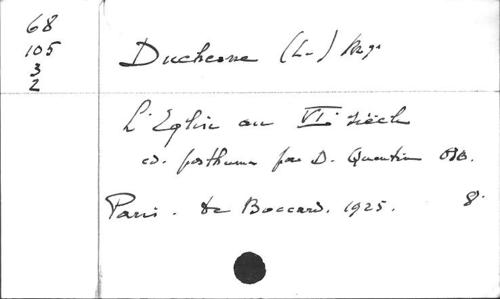 68
105
3
2
Duchesne (L.) Mgr
L'Eglise au VIe siècle
éd. posthume par D. Quentin OSB.
Paris. de Boccard. 1925. 8°